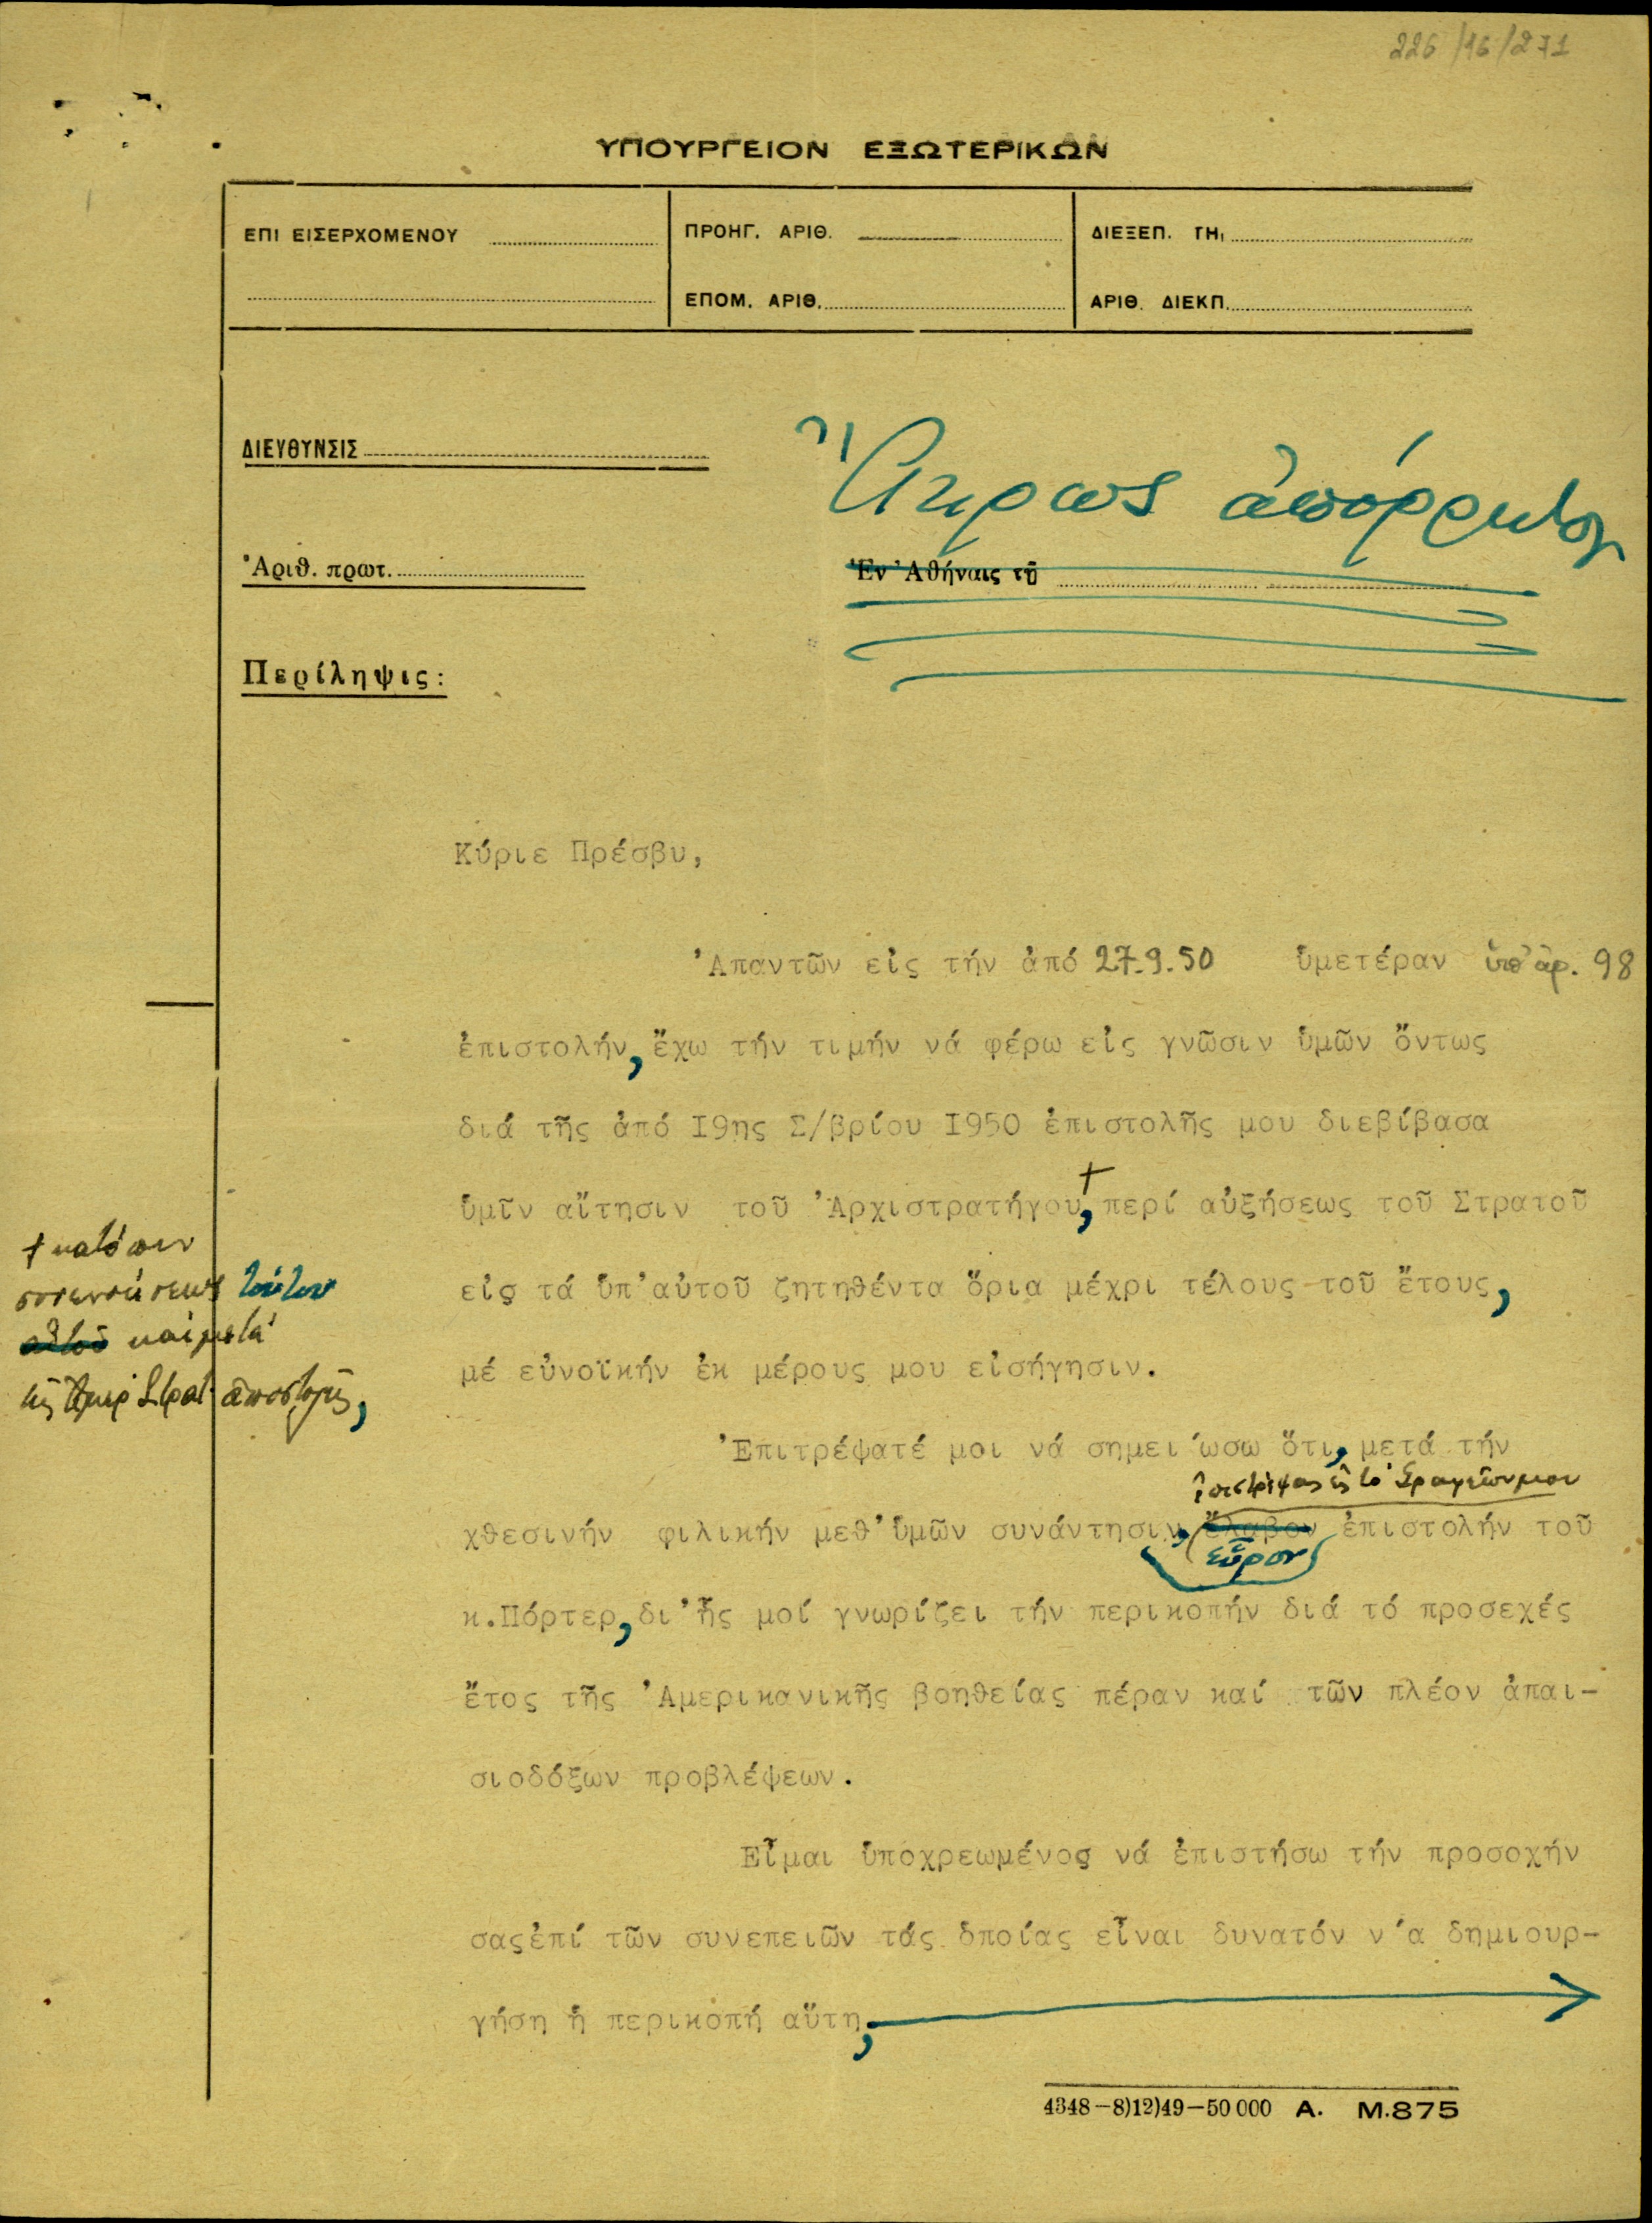 226/16/271
ΥΠΟΥΡΓΕΙΟΝ ΕΞΩΤΕΡΙΚΩΝ
ΕΠΙ ΕΙΣΕΡΧΟΜΕΝΟΥ
ΠΡΟΗΓ. ΑΡΙΘ.
ΔΙΕΞΕΠ. ΤΗι
ΕΠΟΜ. ΑΡΙΘ.
ΑΡΙΘ. ΔΙΕΚΠ.
ΔΙΕΥΘΥΝΣΙΣ
Ἄκρως ἀπόρρητον
Ἀριθ. πρωτ.
Ἐν Ἀθήναις τῇ
Περίληψις:
Κύριε Πρέσβυ,
Ἀπαντῶν εἰς τήν ἀπό 27.9.50 ὑμετέραν ὑπ' ἀρ. 98
ἐπιστολήν, ἔχω τήν τιμήν νά φέρω εἰς γνῶσιν ὑμῶν ὄντως
διά τῆς ἀπό I9ης Σ/βρίου I950 ἐπιστολῆς μου διεβίβασα
ὑμῖν αἴτησιν τοῦ Ἀρχιστρατήγου,+ περί αὐξήσεως τοῦ Στρατοῦ
+ κατόπιν
συνεννοήσεως τούτου
αὐτοῦ καί μετά
τῆς Ἀμερ Στρατ. ἀποστολῆς,
εἰς τά ὑπ' αὐτοῦ ζητηθέντα ὅρια μέχρι τέλους τοῦ ἔτους,
μέ εὐνοϊκήν ἐκ μέρους μου εἰσήγησιν.
Ἐπιτρέψατέ μοι νά σημει΄ωσω ὅτι, μετά τήν
ἐπιστρέψας εἰς τό Γραφεῖον μου
χθεσινήν φιλικήν μεθ' ὑμῶν συνάντησιν, ἔλαβον ἐπιστολήν τοῦ
εὗρον
κ.Πόρτερ, δι' ἧς μοί γνωρίζει τήν περικοπήν διά τό προσεχές
ἔτος τῆς Ἀμερικανικῆς βοηθείας πέραν καί τῶν πλέον ἀπαι-
σιοδόξων προβλέψεων.
Εἶμαι ὑποχρεωμένος νά ἐπιστήσω τήν προσοχήν
σαςἐπί τῶν συνεπειῶν τάς ὁποίας εἶναι δυνατόν ν΄α δημιουρ-
γήση ἡ περικοπή αὕτη,
4348-8)12)49-50 000 Α. Μ.875